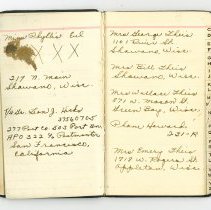 Miss Phyllis Eid
X X X X
217 N. Main
Shawano, Wisc.
T/Sgt. Leon J. Hicks
37540765
277 Port Co. 503 Port Bn.
APO 322 % Postmaster
San Francisco,
California
Mrs George Theis
1101 River St
Shawano, Wisc.
Mrs Bill Theis
Shawano, Wisc.
Mrs Wallace Theis
871 N. Mason St
Green Bay, Wisc.
Phone Howard
231-R
Mrs Emery Theis
1718 W. Rogers St
Appleton, Wisc.